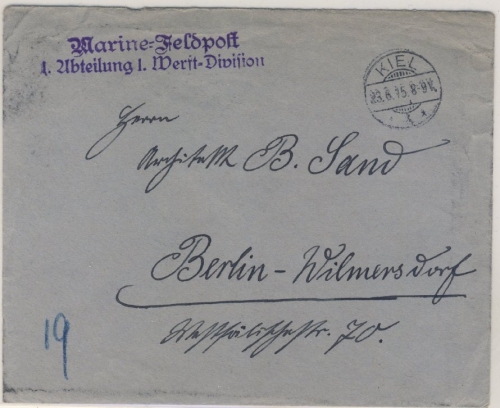 Marine-Feldpost
1. Abteilung 1. Werft-Division
KIEL
23.8.15. 8-9V.
Herrn
Architekt B. Sand
Berlin-Wilmersdorf
Westfälischestr. 70.
19